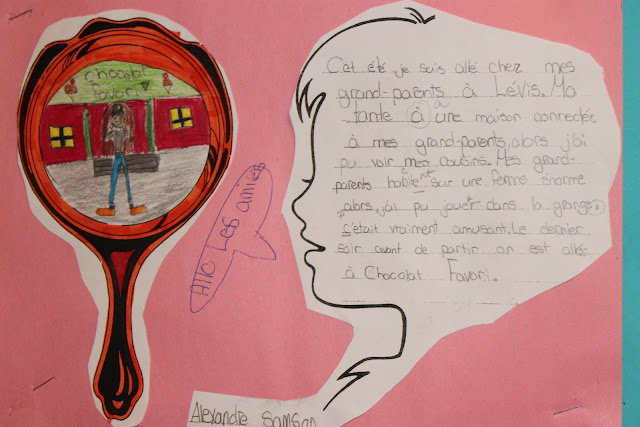 chocolat
favori
Allo Les amies
Cet été je suis allé chez mes
grand-parents à LéVis. Ma
tante à a une maison connectée
à mes grand-parents, alors j'ai
pu voir mes cousins. Mes grand-
parents habitent sur une ferme énorme
alors, j'ai pu jouer dans la grange.
c'était vraiment amusant. Le dernier
soir avant de partir on est allés
à Chocolat Favori.
Alexandre Samson